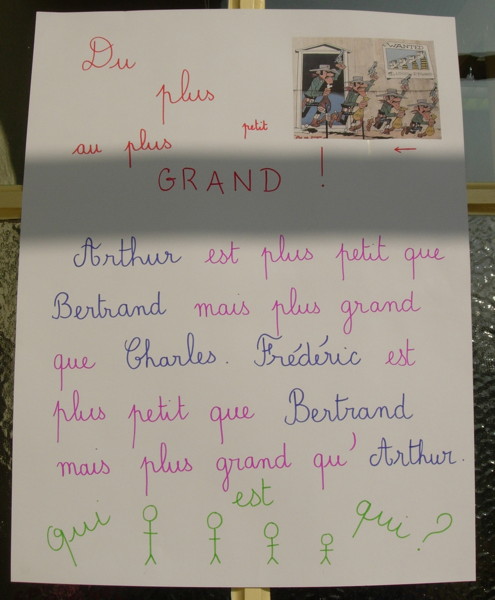 Du
plus
petit
au plus
GRAND !
WANTED
Arthur est plus petit que
Bertrand mais plus grand
que Charles. Frédéric est
plus petit que Bertrand
mais plus grand qu'Arthur.
Qui est qui ?